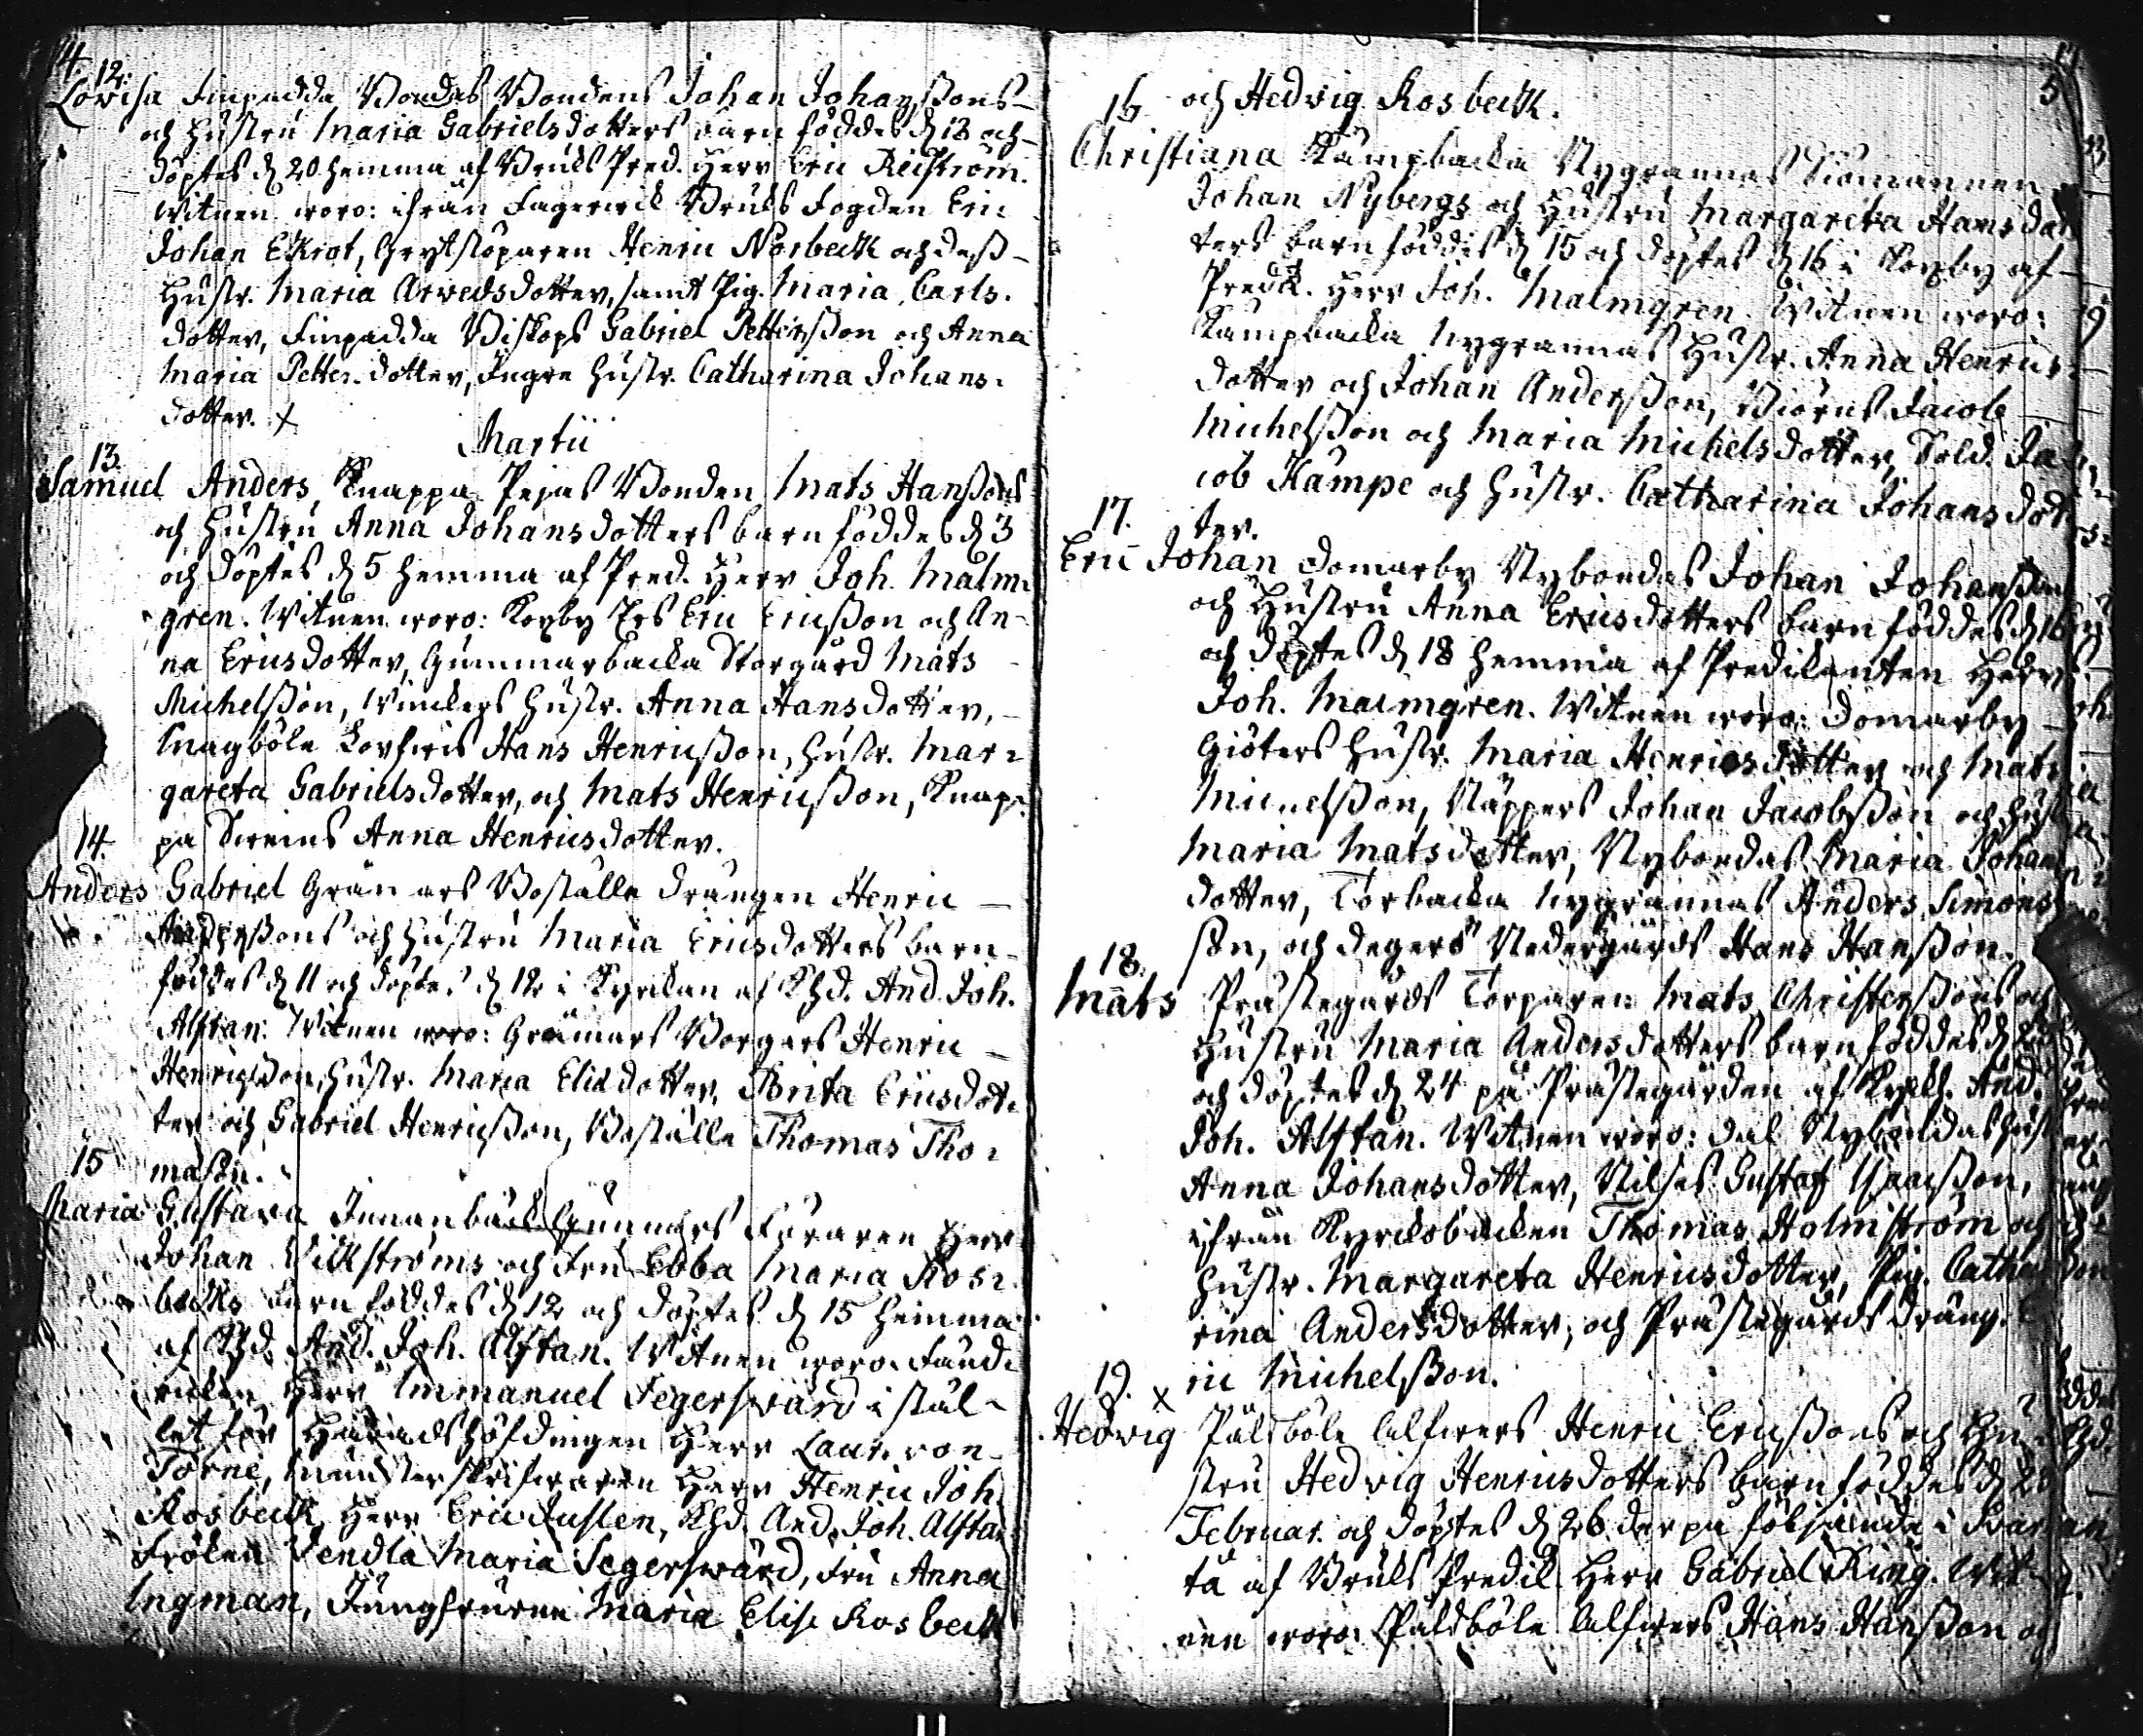 4
12.
Lovisa Finpadda Bondas Bondens Johan Johanssons
och Hustru Maria Gabrielsdotters barn föddes d 18 och
döptes d 20 hemma af Bruks Pred. Herr Eric Reiström.
Witnen woro: ifrån Fagerwik Bruks Fogden Eric
Johan Ekrot, Grytstöparen Henric Norbeck och dess
Hustr. Maria Arvedsdotter, samt Pig. Maria Carls-
dotter, Finpadda Biskops Gabriel Pettersson och Anna
Maria Petter dotter, Ingre Hustr. Catharina Johans-
dotter. x
Martii
13.
Samuel Anders, Knappa Pejas Bonden Mats Hanssons
och Hustru Anna Johansdotters barn föddes d 3
och döptes d 5 hemma af Pred. Herr Joh. Malm-
gren. Witnen woro: Koxby Ers Eric Ericsson och An-
na Ericsdotter, Gummarbacka Storgård Mats
Michelsson, Winckers Hustr. Anna Hansdotter,
Snagböle Hans Henricsson, Hustr. Mar-
gareta Gabrielsdotter, och Mats Henricsson, Knap-
pa Anna Henricsdotter.
14.
Anders Gabriel Gränars Boställe drängen Henric
Anderssons och Hustru Maria Ericsdotters barn
föddes d 11 och döptes d 12 i Kyrckan af Khd. And. Joh.
Alftan. Witnen woro: Gränars Borgars Henric
Henricsson, Hustr. Maria Eliædotter, Brita Ericsdot-
ter och Gabriel Henricsson, Boställe Thomas Tho-
masson.
15
Maria Gustava Innanbäck Gunnars Furaren Herr
Johan Willströms och Fru Ebba Maria Ros-
becks barn föddes d 12 och döptes d 15 hemma
af Khd. And. Joh. Alftan. Witnen woro: Fänd-
ricken Herr Immanuel Segersvärd i stäl-
let för Häradshöfdingen Herr Laur. von
Torne, Munsterskrifwaren Herr Henric Joh.
Rosbeck, Herr Eric Juslen, Khd. And. Joh. Alftan
Frölen Vendla Maria Segersvärd, Fru Anna
Ingman, Jungfrurne Maria Elis. Rosbeck
5
16
och Hedvig Rosbeck.
Christiana Kämpbacka Nygrannas Siömannen
Johan Nybergs och Hustru Margareta Hansdot-
ters barn föddes d 15 och döptes d 16 i Koxby af
Predik. Herr Joh. Malmgren. Witnen woro:
Kämpbacka Nygrannas Hustr. Anna Henrics-
dotter och Johan Andersson, Biörns Jacob
Michelsson och Maria Michelsdotter, Sold. Ja-
cob Kämpe och Hustr. Catharina Johansdot-
17. ter.
Eric Johan Domarby Nybondas Johan Johansson
och Hustru Anna Ericsdotters barn föddes d 16
och döptes d 18 hemma af Predikanten Herr
Joh. Malmgren. Witnen woro: Domarby
Giöters Hustr. Maria Henricsdotter och Mats
Michelsson, Näppers Johan Jacobsson och Hust
Maria Matsdotter, Nybondas Maria Johans
dotter, Torbacka Nygrannas Anders Simons
son, och Degerö Nedergårds Hans Hansson.
18.
Mats Prästegårds Torparen Mats Christerssons och
Hustru Maria Andersdotters barn föddes d
och döptes d 24 på Prästegården af Kyrckh. And.
Joh. Alftan. Witnen woro: Dal Nybondas Hust
Anna Johansdotter, Nilses Gustaf Isacsson,
ifrån Kyrckobacken Thomas Holmström och
Hustr. Margareta Henricsdotter, Pig. Catha-
rina Andersdotter, och Prästegårds dräng. E
ric Michelsson.
19. x
Hedvig Påldböle Henric Ericssons och Hu-
stru Hedvig Henricsdotters barn föddes d 20
Februar. och döptes d 26 derpå följande i Svar-
tå af Bruks Predik. Herr Gabriel King. Wit-
nen woro: Påldböle Hans Hansson och